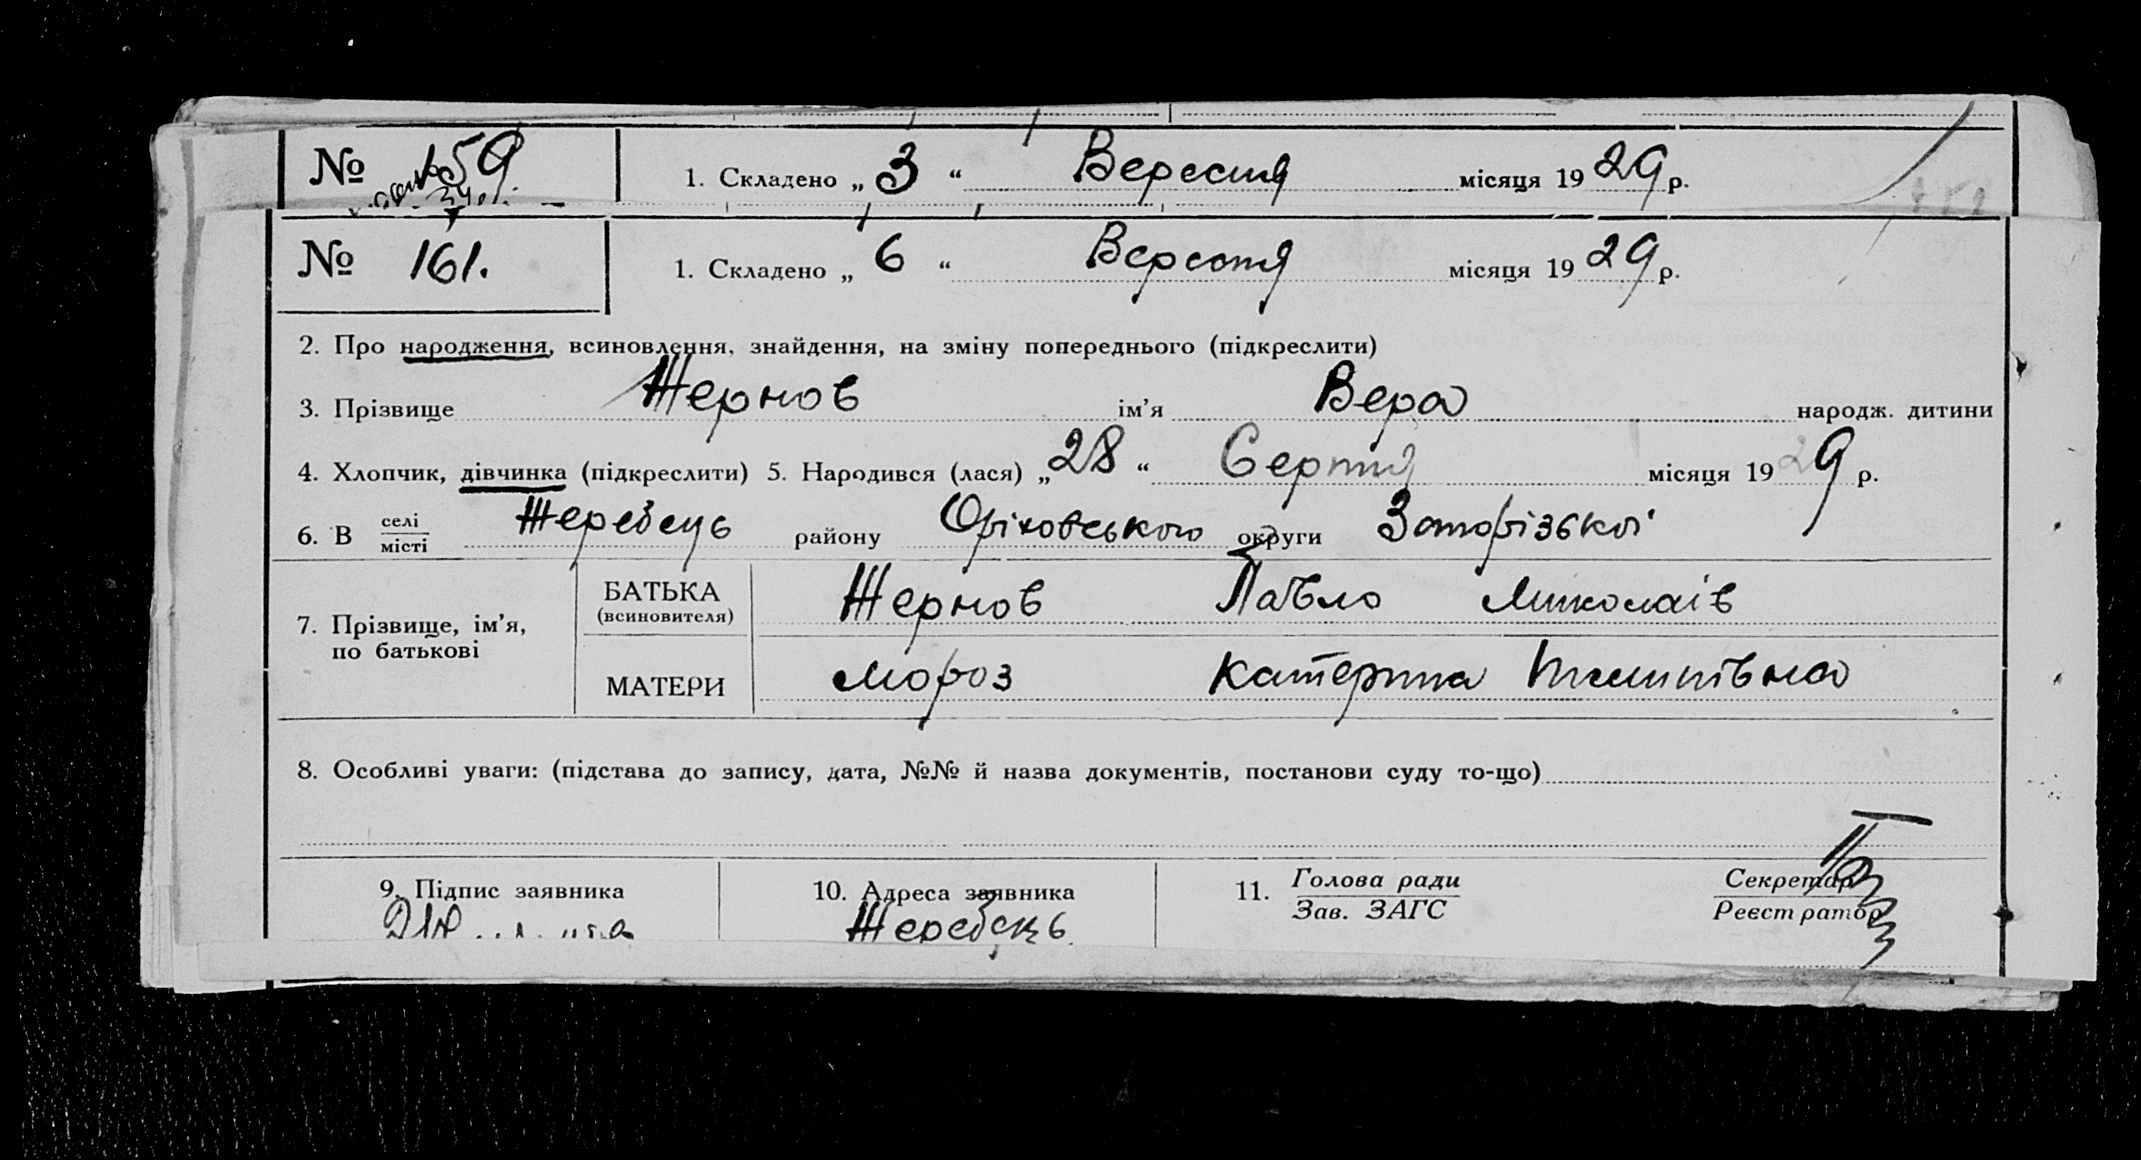 № 159
1. Складено „ 3 “ Вересня місяця 19 29 р.
№ 161.
1. Складено „ 6 “ Вересня місяця 19 29 р.
2. Про народження, всиновлення, знайдення, на зміну попереднього (підкреслити)
3. Прізвище Жернов ім’я Вера народж. дитини
4. Хлопчик, дівчинка (підкреслити) 5. Народився (лася) „ 28 “ Серпня місяця 19 29 р.
6. В селі/місті Жеребець району Оріховського округи Запорізької
7. Прізвище, ім’я, по батькові
БАТЬКА (всиновителя) Жернов Павло Миколаїв
МАТЕРИ Мороз Катерина Пилипівна
8. Особливі уваги: (підстава до запису, дата, №№ й назва документів, постанови суду то-що)
9. Підпис заявника
10. Адреса заявника
Жеребець
11. Голова ради
Зав. ЗАГС
Секретар
Реєстратор